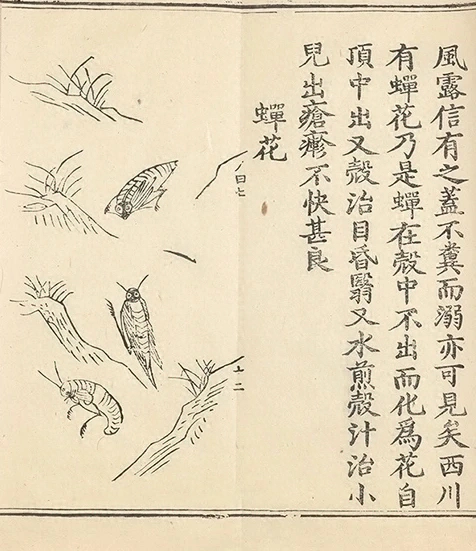 風露信有之蓋不糞而溺亦可見矣西川
有蟬花乃是蟬在殼中不出而化為花自
頂中出又殼治目昏翳又水煎殼汁治小
兒出瘡疹不快甚良
蟬花